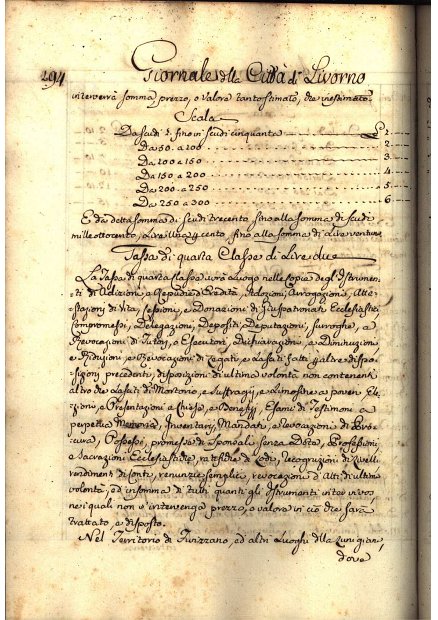 294
Giornale della Città di Livorno
interverrà somma, prezzo, o valore tanto stimato, che inestimato.
Scala
Da scudi 1. fino in scudi cinquanta £ 1
Da 50. a 100 2
Da 100 a 150 3
Da 150 a 200 4
Da 200 a 250 5
Da 250 a 300 6
E da detta somma di scudi trecento fino alla somma di scudi
mille ottocento, Lire una per cento, fino alla somma di Lire ventuna
Tassa di quarta Classe di Lire due
La Tassa di quarta Classe avrà luogo nelle Copie degl'Istrumen-
ti di Adizioni, e Repudie d'Eredità, Arrogazioni, Atte-
stazioni di Vita, e Donazioni di Juspatronati Ecclesiastici
Compromessi, Delegazioni, Depositi, Deputazioni, surroghe, e
Revocazioni di Tutori, o Esecutori, Dichiarazioni, e Diminuzioni
e Revocazioni di Legati, e Lasciti fatti per altre dispo-
sizioni precedenti, disposizioni di ultima volontà non contenenti
altro che Lasciti di Mortorio, e Suffragj, e Limosine a poveri Ele-
zioni, e Presentazioni a Chiese, e Benefizj, Esami di Testimoni a
perpetua Memoria, Inventarj, Mandati, e Revocazioni di Pro-
cura, Possessi, promesse di Sponsali senza Dote, Professioni
e Sacrazioni Ecclesiastiche, ratifiche di Lodi, Recognizioni di Livelli
rendimenti di Conti, renunzie semplici, revocazioni d'atti di ultima
volontà, ed insomma di tutti quanti gli Istrumenti inter vivos
nei quali non v'intervenga prezzo, o valore in ciò che sarà
trattato, e disposto.
Nel Territorio di Fivizzano, ed altri Luoghi della Lunigiana,
dove